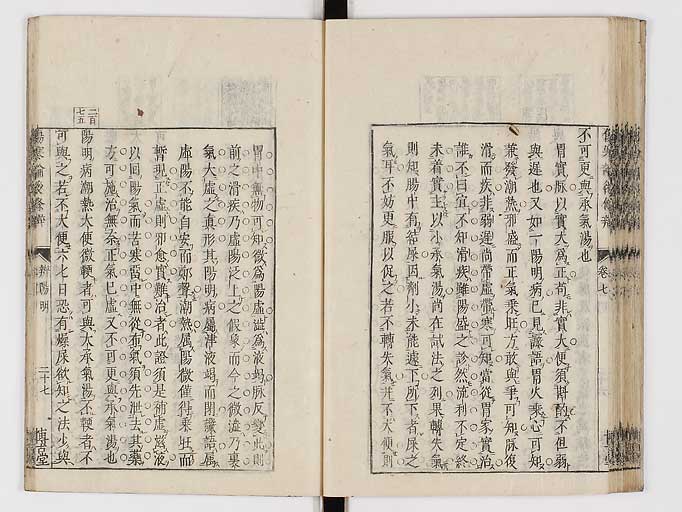 不可更與承氣湯也
胃實脉以實大爲正苟非實大便須斟酌不但弱
與遲也又如一陽明病已見譫語胃火乘心可知
兼發潮熱邪盛而正氣乘旺方敢與爭可知脉復
滑而疾非弱遲尚帶虛帶寒可知當從胃家實治
誰不曰宜不知滑疾雖陽盛之診然流利不定終
未着實主以小承氣湯尚在試法之列果轉失氣
則知腸中有結屎因劑小未能遽下所下者屎之
氣耳不妨更服以促之若不轉失氣并不大便則
胃中無物可知微爲陽虛澁爲液竭脉反變此則
前之滑疾乃虛陽泛上之假象而今之微澁乃裏
氣大虛之真形其陽明病屬津液竭而閉譫語屬
虛陽不能自安而鄭聲潮熱屬陽微僅得乘旺而
暫現正虛則邪愈實難治者此證須是補虛滋液
以回陽氣而苦寒胃中無從布氣須先泄去其藥
方可施治無奈正氣已虛又不可更與承氣湯也
二百七五
陽明病潮熱大便微鞕者可與大承氣湯不鞕者不
可與之若不大便六七日恐有燥屎欲知之法少與
傷寒論後條辨
辨陽明
二十七
博古堂
卷七